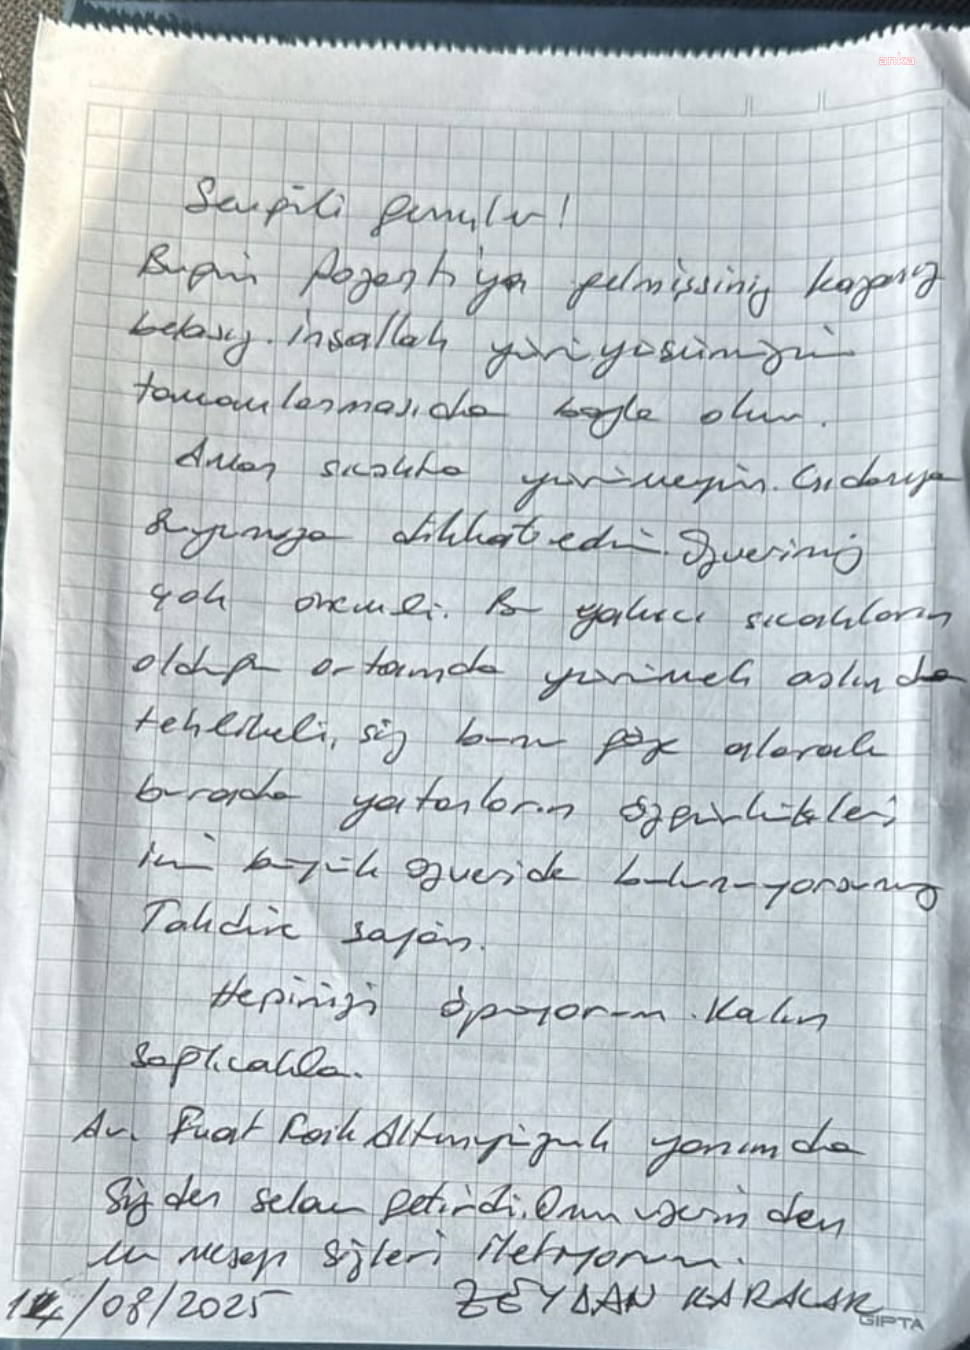 anka
Sevgili gençler!
Bugün Pozantı'ya gelmişsiniz kazasız
belasız. İnşallah yürüyüşünüzün
tamamlanması da böyle olur.
Aman sıcakta yürümeyin. Gıdanıza
suyunuza dikkat edin. Özveriniz
çok önemli. Bu yakıcı sıcakların
olduğu ortamda yürümek aslında
tehlikeli, siz bunu göze alarak
burada yatanların özgürlükleri
için büyük özveride bulunuyorsunuz
Takdire şayan.
Hepinizi öpüyorum. Kalın
sağlıcakla.
Av. Fuat Altınyüzük yanımda
Sizden selam getirdi. Onun üzerinden
bu mesajı sizlere iletiyorum.
14/08/2025 ZEYDAN KARALAR
GIPTA